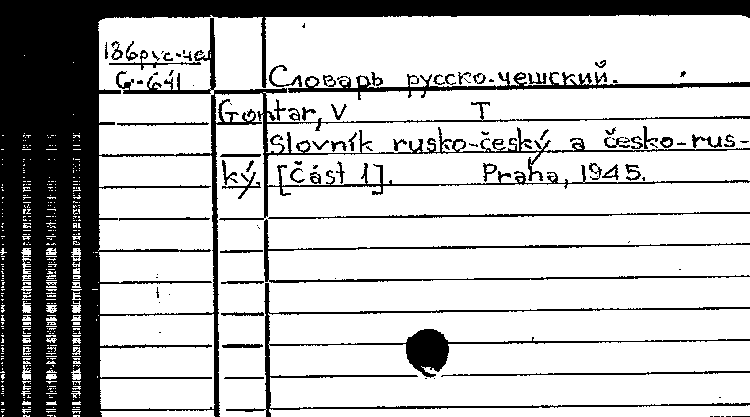 186рус-чеш
G-641
Словарь русско-чешский.
Gontar, V T
Slovník rusko-český a česko-rus-
ký. [Část 1]. Praha, 1945.